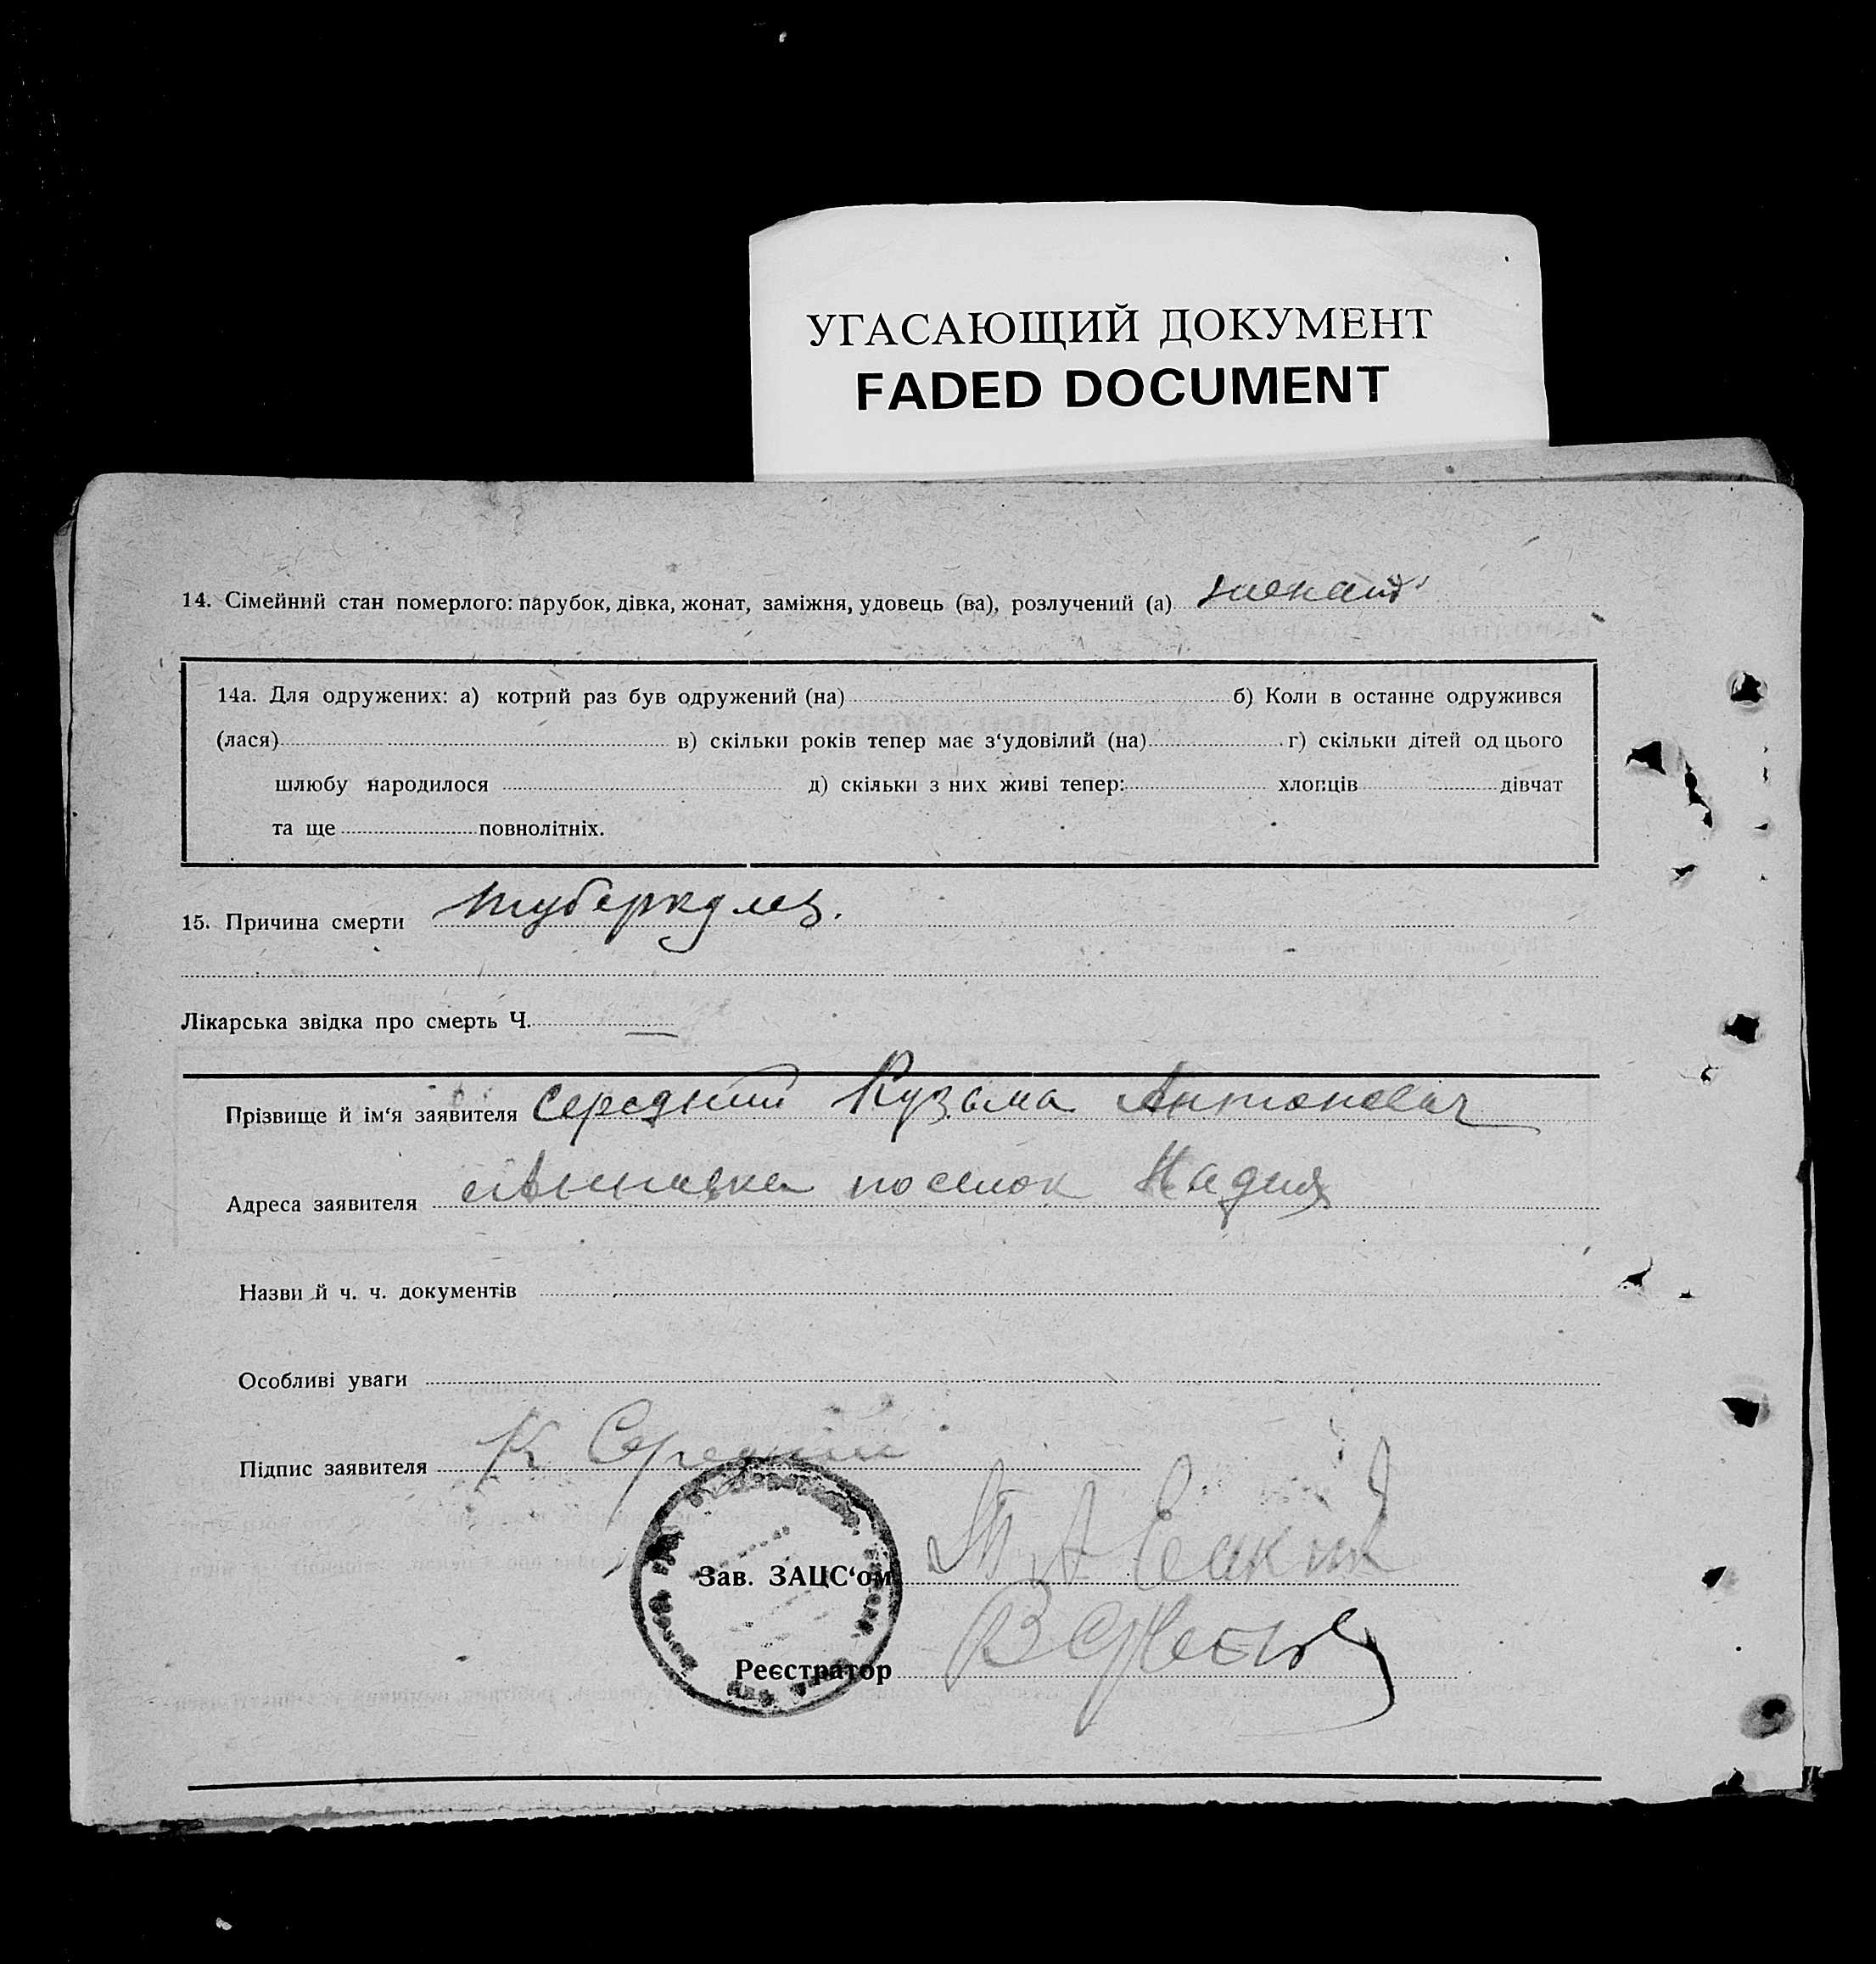 УГАСАЮЩИЙ ДОКУМЕНТ
FADED DOCUMENT
14. Сімейний стан померлого: парубок, дівка, жонат, заміжня, удовець (ва), розлучений (а) жонат
14а. Для одружених: а) котрий раз був одружений (на) б) Коли в останне одружився
(лася) в) скільки років тепер має з‘удовілий (на) г) скільки дітей од цього
шлюбу народилося д) скільки з них живі тепер: хлопців дівчат
та ще повнолітніх.
15. Причина смерти туберкулез.
Лікарська звідка про смерть Ч. —
Прізвище й ім‘я заявителя Середний Кузьма Антонович
Адреса заявителя поселок Надия
Назви й ч. ч. документів
Особливі уваги
Підпис заявителя К Середний
Зав. ЗАЦС‘ом
Реєстратор